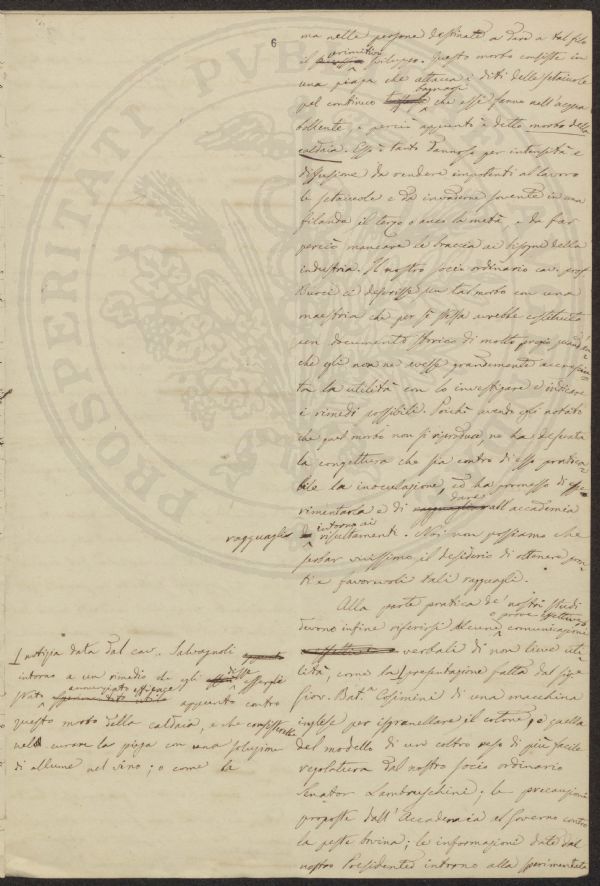 6
ma nelle persone destinate a dare a tal filo
il primitivo sviluppo. Questo morbo consiste in
una piaga che attacca i diti delle setaiuole
pel continuo bagnarsi che esse fanno nell'acqua
bollente, e perciò appunto è detto morbo della
caldaia. Esso è tanto dannoso per intensità e
diffusione da rendere impotenti al lavoro
le setaiuole e da invadere sovente in una
filanda il terzo o anco la metà, e da far
perciò mancare le braccia ai bisogni della
industria. Il nostro socio ordinario cav. prof.
Burci ci descrisse un tal morbo con una
maestria che per se stessa avrebbe costituito
un documento storico di molto pregio quand'an-
che egli non ne avesse grandemente accresciu-
ta la utilità con lo investigare e indicare
i rimedi possibili. Poichè avendo egli notato
che quel morbo non si riproduce, ne ha desunta
la congettura che sia contro di esso pratica-
bile la inoculazione, ed ha promesso di spe-
rimentarla e di dare all'accademia
ragguaglio intorno ai resultamenti. Noi non possiamo che
serbar vivissimo il desiderio di ottenere pron-
ti e favorevoli tali ragguagli.
Alla parte pratica de' nostri studi
devono infine riferirsi alcune comunicazioni
o prove
verbali di non lieve uti-
lità, come la presentazione fatta dal sig.
Giov. Bat.a Cosimini di una macchina
inglese per isgranellare il cotone, e quella
del modello di un coltro reso di più facile
regolatura dal nostro socio ordinario
Senator Lambruschini; le precauzioni
proposte dall'Accademia al Governo contro
la peste bovina; le informazioni date dal
nostro Presidente intorno alla sperimentata
notizia data dal cav. Salvagnoli
intorno a un rimedio che egli disse essergli
stato annunziato efficace appunto contro
questo morbo della caldaia, e che consisterebbe
nel curare la piaga con una soluzione
di allume nel vino; o come la